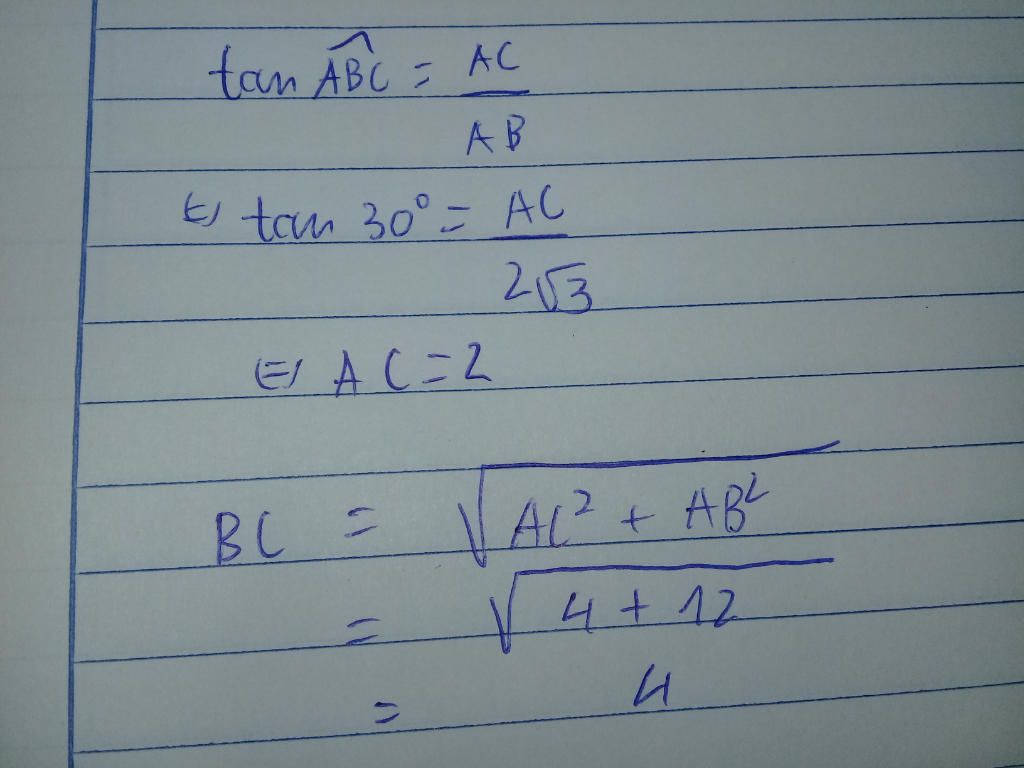 tan \widehat{ABC} = \frac{AC}{AB}
⇔ tan 30° = \frac{AC}{2\sqrt{3}}
⇔ AC = 2
BC = \sqrt{AC² + AB²}
= \sqrt{4 + 12}
= 4